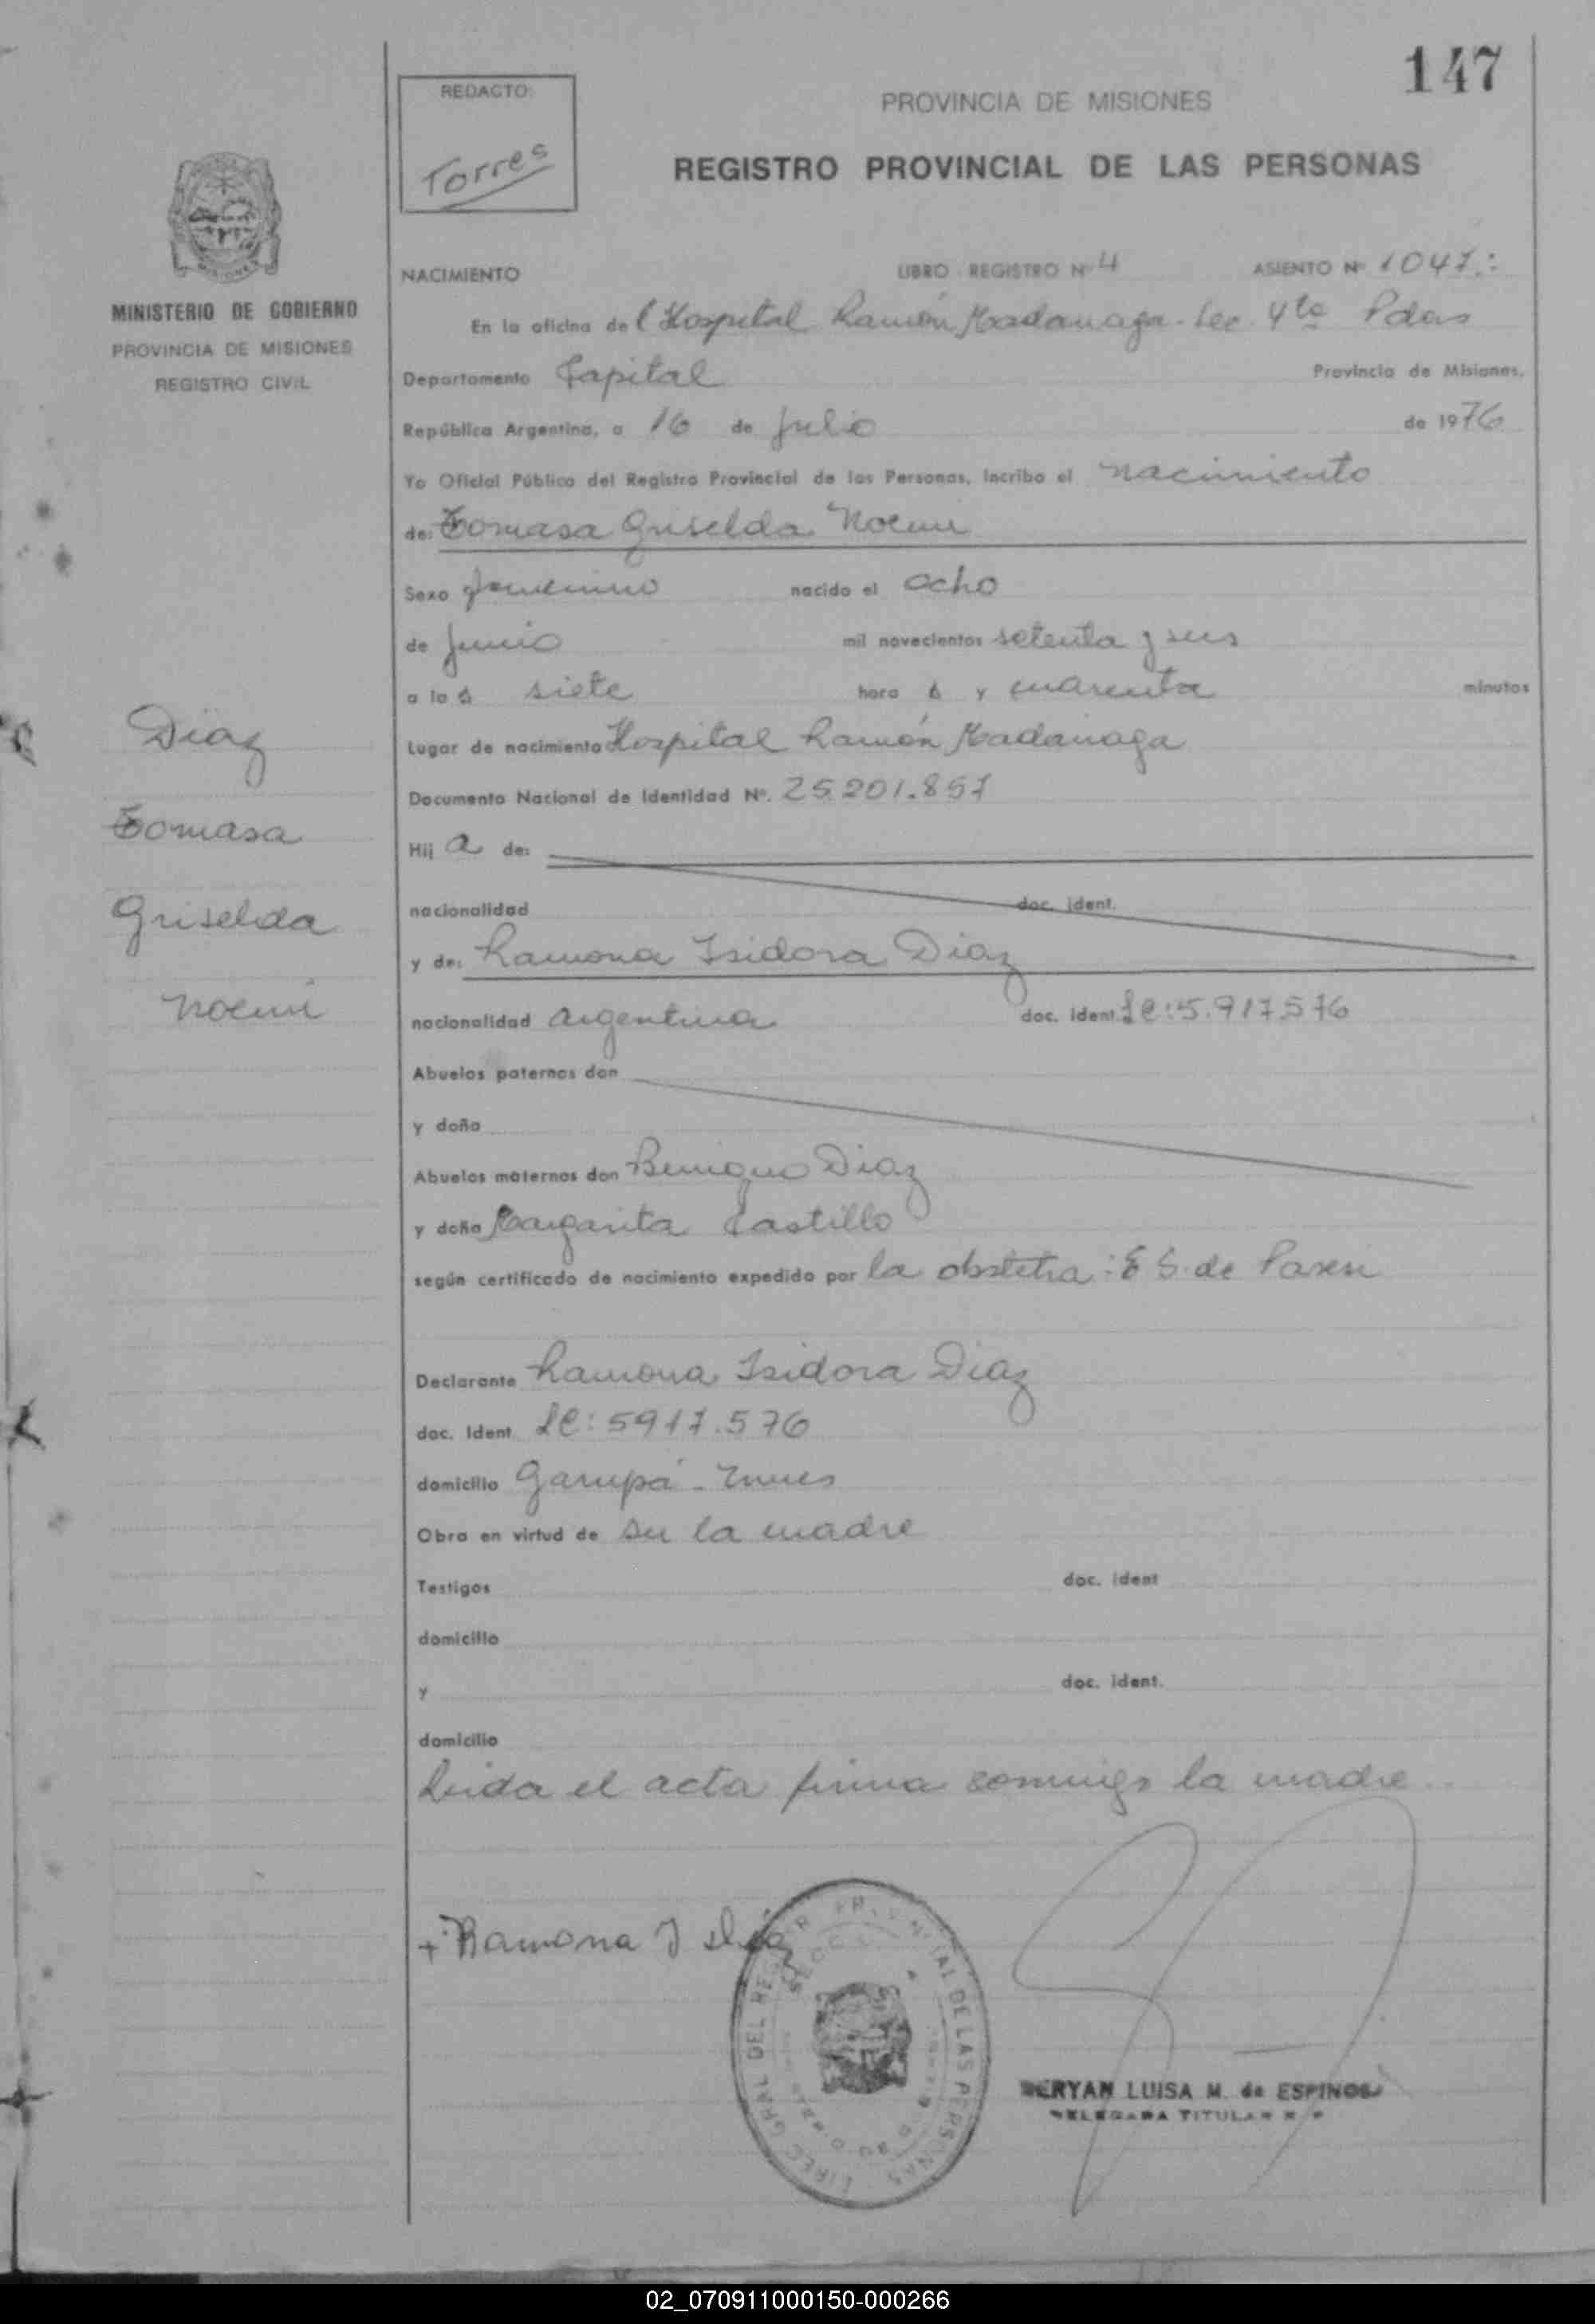 147
REDACTO:
Torres
PROVINCIA DE MISIONES
REGISTRO PROVINCIAL DE LAS PERSONAS
MINISTERIO DE GOBIERNO
PROVINCIA DE MISIONES
REGISTRO CIVIL
NACIMIENTO LIBRO REGISTRO Nº 4 ASIENTO Nº 1047.:
En la oficina del Hospital Ramón Madariaga - Sec. 4ta Pdas
Departamento Capital Provincia de Misiones,
República Argentina, a 16 de Julio de 1976
Yo Oficial Público del Registro Provincial de las Personas, incribo el nacimiento
de: Tomasa Griselda Noemi
Sexo femenino nacido el ocho
de junio mil novecientos setenta y seis
a las siete horas y cuarenta minutos
Lugar de nacimiento Hospital Ramón Madariaga
Documento Nacional de Identidad Nº. 25.201.857
Hija de:
nacionalidad doc. ident.
y de: Ramona Isidora Diaz
nacionalidad argentina doc. ident. LC: 5.917.576
Abuelos paternos don
y doña
Abuelos maternos don Benigno Diaz
y doña Margarita Castillo
según certificado de nacimiento expedido por la obstetra: E S. de
Declarante Ramona Isidora Diaz
doc. Ident. LC: 5917.576
domicilio Garupá - Mnes
Obra en virtud de ser la madre
Testigos doc. ident
domicilio
y doc. ident.
domicilio
Leida el acta firma conmigo la madre..
Diaz
Tomasa
Griselda
Noemi
+ Ramona I Diaz
DIREC GRAL DEL REG PROVINCIAL DE LAS PERSONAS
LUISA M. de ESPINOSA
DELEGADA TITULAR
02_070911000150-000266